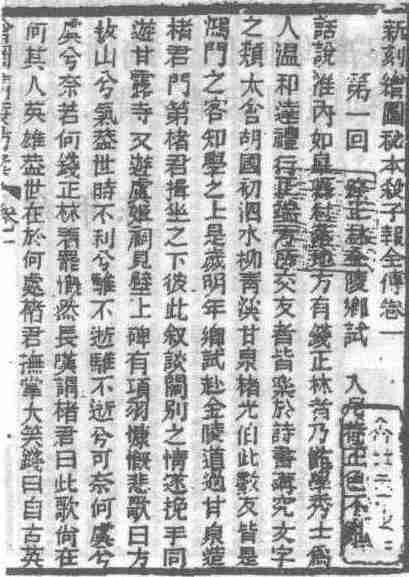 新刻繪圖秘本殺子報全傳卷一
第一回 錢正林金陵鄉試 入
話說淮內如皋 地方有錢正林者乃 學秀士爲
人溫和達禮行 所交友者皆樂於詩書講究文字
之類太倉胡國初泗水柳青溪甘泉楮光伯此數友皆是
鴻門之客知學之上是歲明年鄉試赴金陵道過甘泉造
楮君門第楮君揖坐之下彼此叙談闊別之情遂挽手同
遊甘露寺又遊虞姬祠見壁上碑有項羽慷慨悲歌曰力
拔山兮氣蓋世時不利兮騅不逝騅不逝兮可奈何虞兮
虞兮奈若何錢正林看罷慨然長嘆謂楮君曰此歌尚在
何其人英雄蓋世在於何處楮君撫掌大笑錢曰自古英